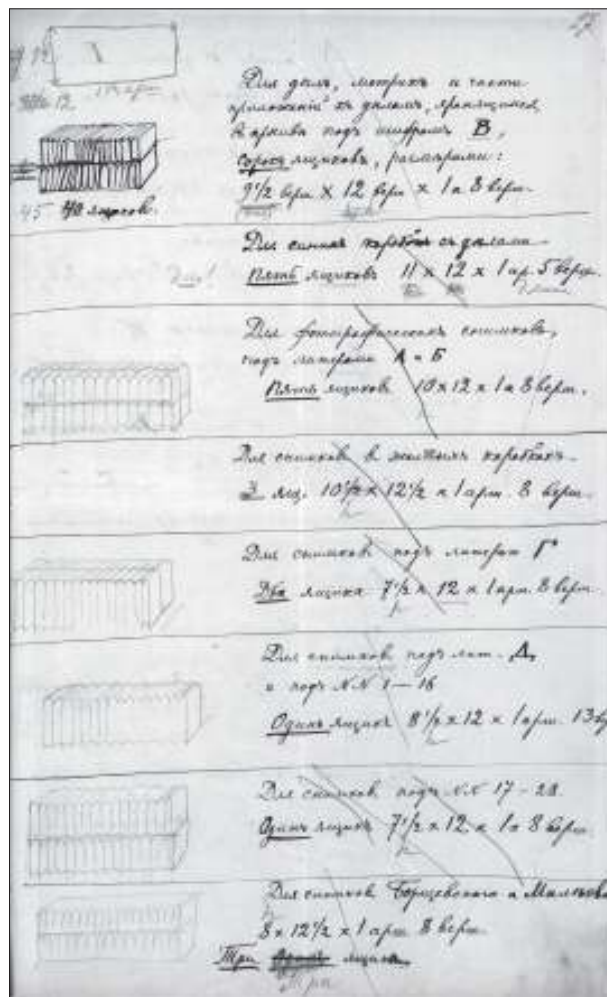 27
12
Для дѣлъ, метрикъ и части
приложеній къ дѣламъ, хранящихся
въ архивѣ подъ шифромъ В,
сорокъ ящиковъ, размѣрами:
9 1/2 верш. х 12 верш х 1 а 8 верш.
45. 40 ящиков.
Для синихъ коробокъ съ дѣлами
Пять ящиковъ 11 х 12 х 1 ар. 5 верш.
Для фотографическихъ снимковъ,
подъ литерами А и Б
Пять ящиковъ 10 х 12 х 1 а 8 верш.
Для снимковъ в желтыхъ коробкахъ
3 ящ. 10 1/2 х 12 1/2 х 1 арш. 8 верш.
Для снимковъ подъ литерой Г
Два ящика 7 1/2 х 12 х 1 арш. 8 верш.
Для снимковъ подъ лит. Д
и подъ N.N 1 — 16
Одинъ ящикъ 8 1/2 х 12 х 1 арш. 13
Для снимковъ подъ N.N 17 - 28
Одинъ ящикъ 7 1/2 х 12 х 1 а 8 верш.
Для снимковъ Борщевскаго и
8 х 12 1/2 х 1 арш 8 верш.
Три ящика
Три